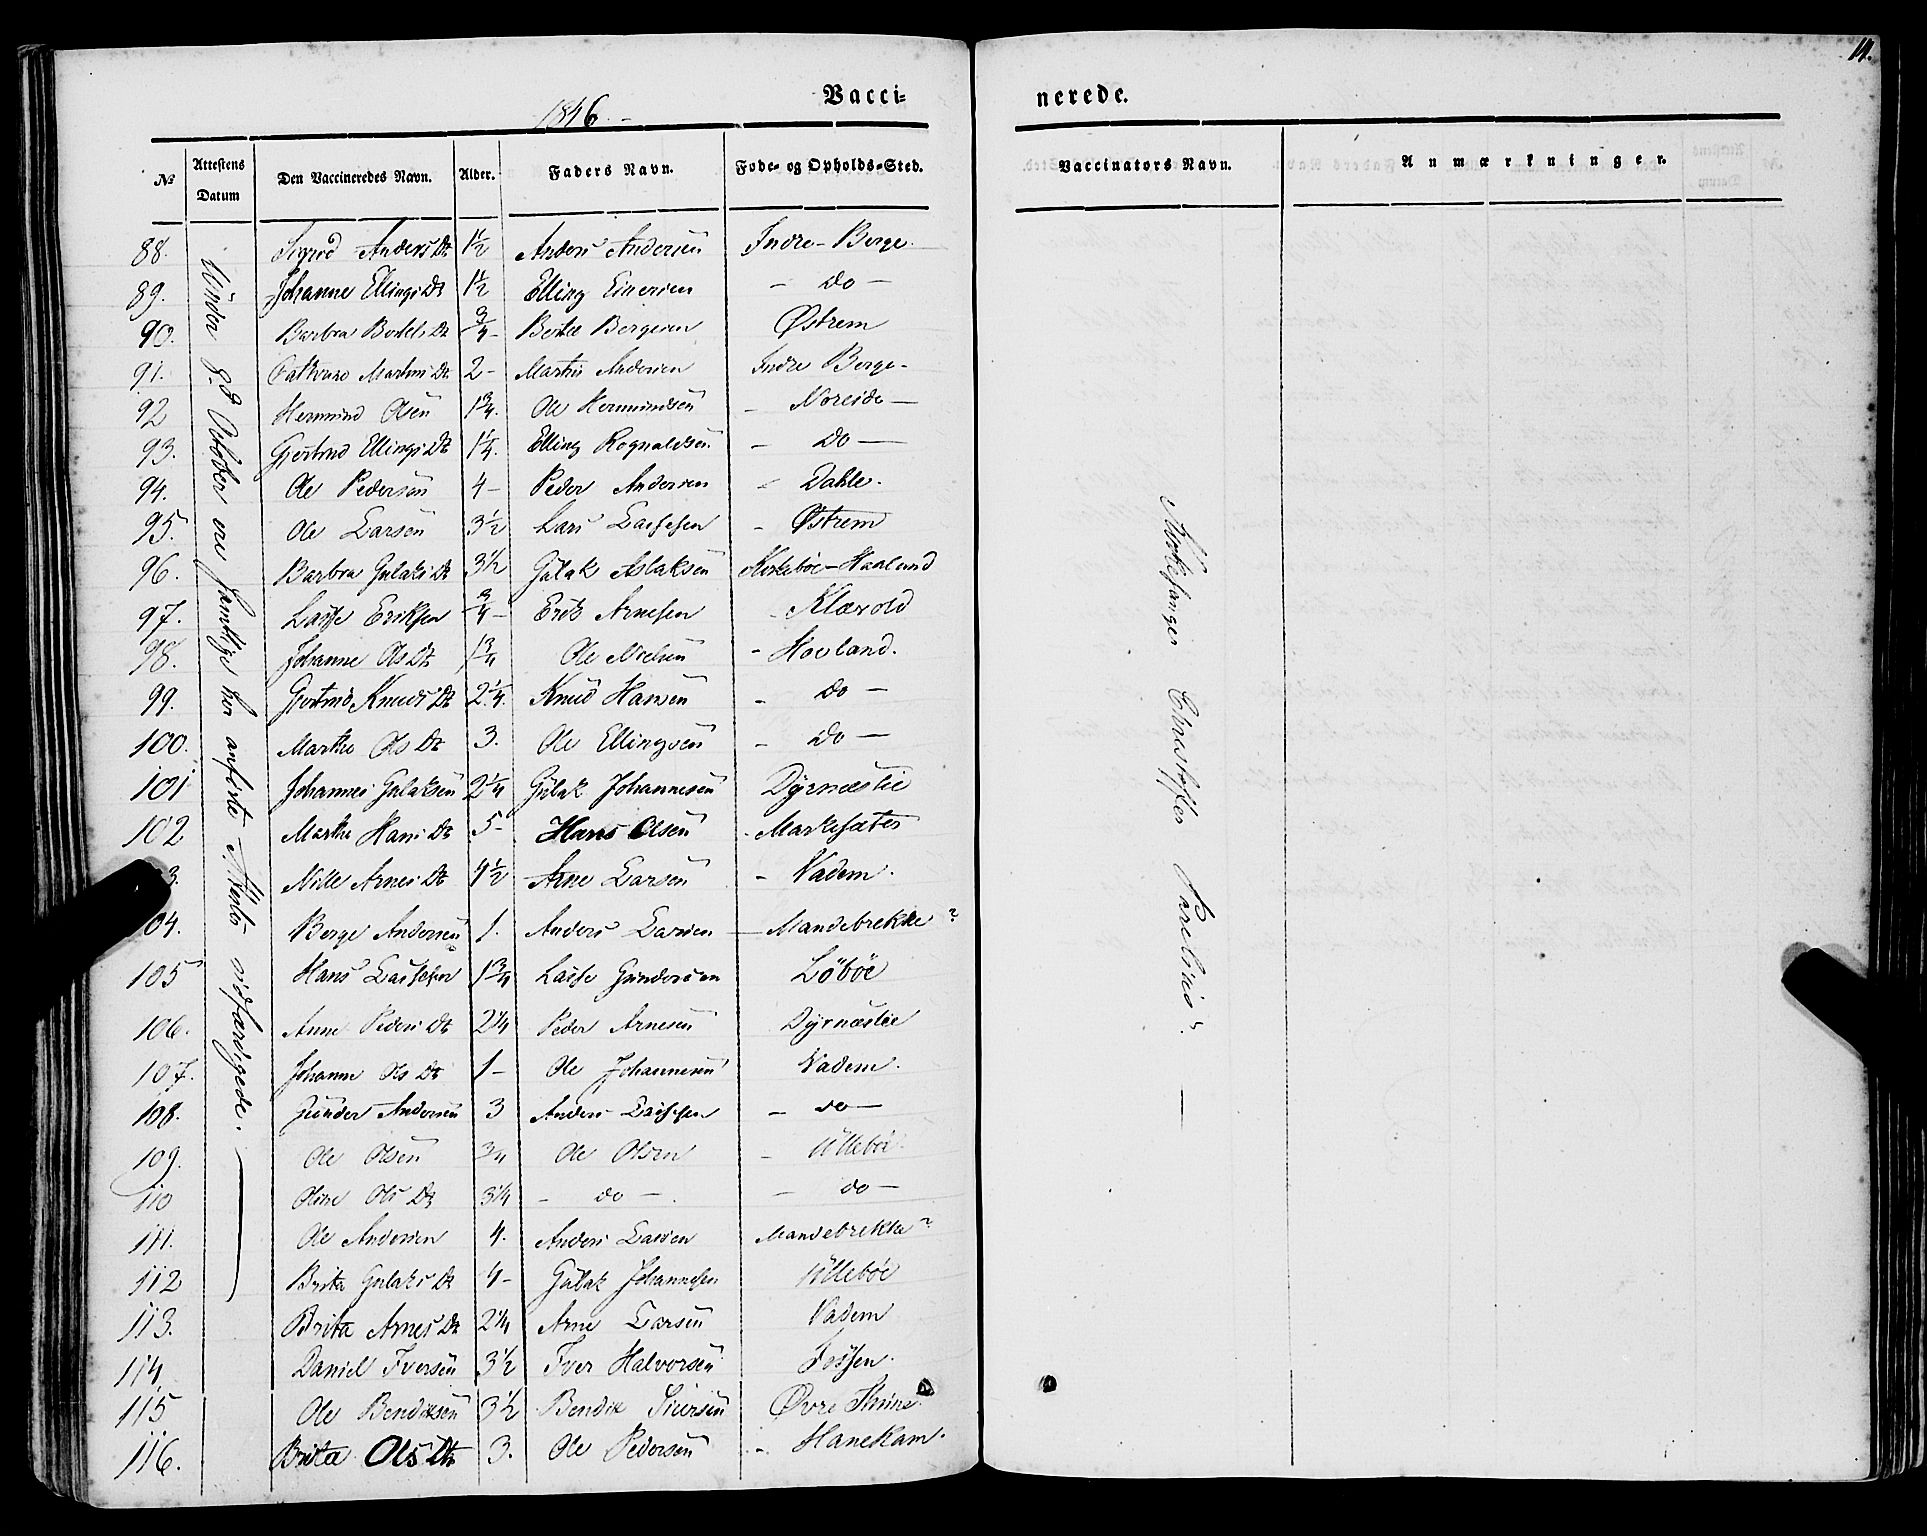 14.
1846. -
Vacci=
nerede.
№ Attestens Datum Den Vaccineredes Navn. Alder. Faders Navn. Føde- og Opholds-Sted. Vaccinators Navn. Anmærkninger.
88. Sigrid Anders Dt 1½ Anders Andersen Indre-Berge.
89. Johanne Ellings Dt 1½ Elling - do -
90. Barbra Botels Dt ¾- Botel Bergesen Østrem
91. Martins Dt 2- Martin Andersen Indre Berge-
92 Hermund Olsen 1¾. Ole Hermundsen - Noreide -
93. Gjertrud Ellings Dt 1¼. Elling Rognaldsen - do -
94. Ole Pedersen 4- Peder Andersen - Dahle.
95. Ole Larsen 3½ Lars Lassesen - Østrem
96. Barbra Gulaks Dt 3½ Gulak Aslaksen Kirkebøe-Haaland
97. Lasse Eriksen ¾- Erik Arnesen - Klævold
98. Johanne Ols Dt 1¾ Ole Nielsen - Hovland.
99. Gjertrud Knuds Dt 2¼. Knud Hansen - do -
100. Marthe Ols Dt 3. Ole Ellingsen - do -
101 Johannes Gulaksen 2¼ Gulak Johannesen Dyrnæslie
102 Marthe Hans Dt 5- Hans Olsen - Markesæter
3. Nille Arnes Dt 4½ Arne Larsen - Vadem.
104. Berge Andersen 1. Anders Larsen - Mandebrekke?
105 Hans Lassesen 1¾ Lasse Gundersen Løbøe
106. Anne Peders Dt 2¼ Peder Arnesen Dyrnæslie
107. Johanne Ols Dt 1- Ole Johannesen Vadem.
108. Gunder Andersen 3 Anders Lassesen - do -
109. Ole Olsen ¾ Ole Olsen - Ullebøe
110 Oline Ols Dt 3¼ - do - . - do -
111. Ole Andersen 4. Anders Larsen Mandebrekka?
112 Brita Gulaks Dt 4- Gulak Johannesen Ullebøe
113. Brita Arnes Dt 2¼ Arne Larsen Vadem
114. Daniel Iversen 3½ Iver Halvorsen
115 Ole Bendiksen 3½ Bendik Siursen Øvre Thune
116. Brita Ols Dt 3. Ole Pedersen - Hanekam.
Under 8. October ere samtlige her anførte Attester udfærdigede.
Kirkesanger Christoffer